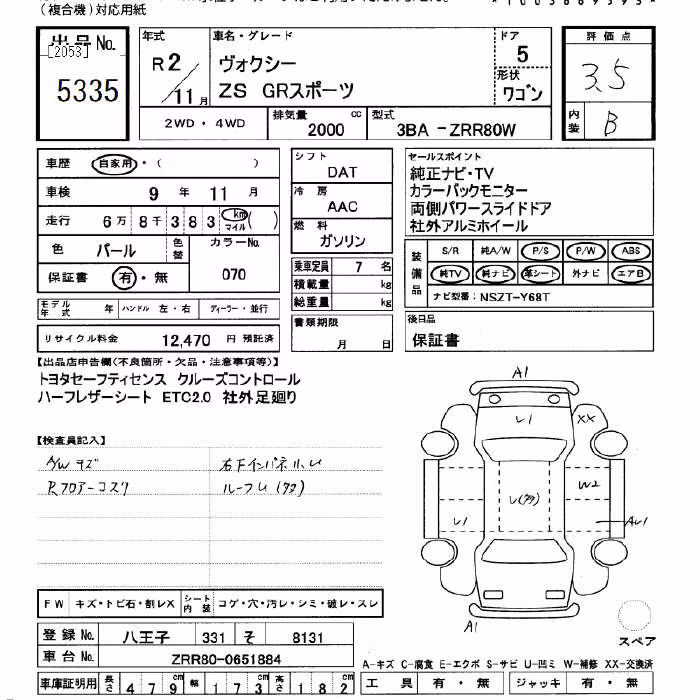 (複合機)対応用紙
出品No.
[2053]
5335
年式
R2/11月
車名・グレード
ヴォクシー
ZS GRスポーツ
ドア
5
形状
ワゴン
評価点
3.5
内装
B
2WD・4WD
排気量
2000 cc
型式
3BA-ZRR80W
車歴 自家用・( )
車検 9年 11月
走行 6万8千383 km マイル ( )
色 パール 色替 カラーNo. 070
保証書 有・無
シフト
DAT
冷房
AAC
燃料
ガソリン
乗車定員 7名
積載量 kg
総重量 kg
書類期限
月 日
セールスポイント
純正ナビ・TV
カラーバックモニター
両側パワースライドドア
社外アルミホイール
装備品
S/R 純A/W P/S P/W ABS
純TV 純ナビ 革シート 外ナビ エアB
ナビ型番:NSZT-Y68T
モデル年式 年 ハンドル 左・右 ディーラー・並行
リサイクル料金 12,470 円 預託済
後日品
保証書
【出品店申告欄(不良箇所・欠品・注意事項等)】
トヨタセーフティセンス クルーズコントロール
ハーフレザーシート ETC2.0 社外足廻り
【検査員記入】
A/Wキズ 右下インパネ小U
Rフロアーコスリ ルーフU(多)
A1
U1
XX
U(多)
W2
U1
AU1
A1
スペア
FW キズ・トビ石・割レX シート内装 コゲ・穴・汚レ・シミ・破レ・スレ
登録No. 八王子 331 そ 8131
車台No. ZRR80-0651884
A-キズ C-腐食 E-エクボ S-サビ U-凹ミ W-補修 XX-交換済
車庫証明用 長さ 479cm 幅 173cm 高さ 182cm
工具 有・無 ジャッキ 有・無